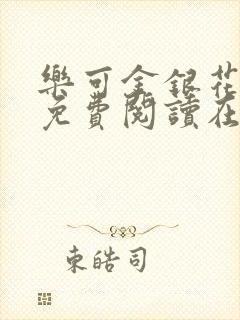 樂可金銀花
免費閱讀在
東皓司